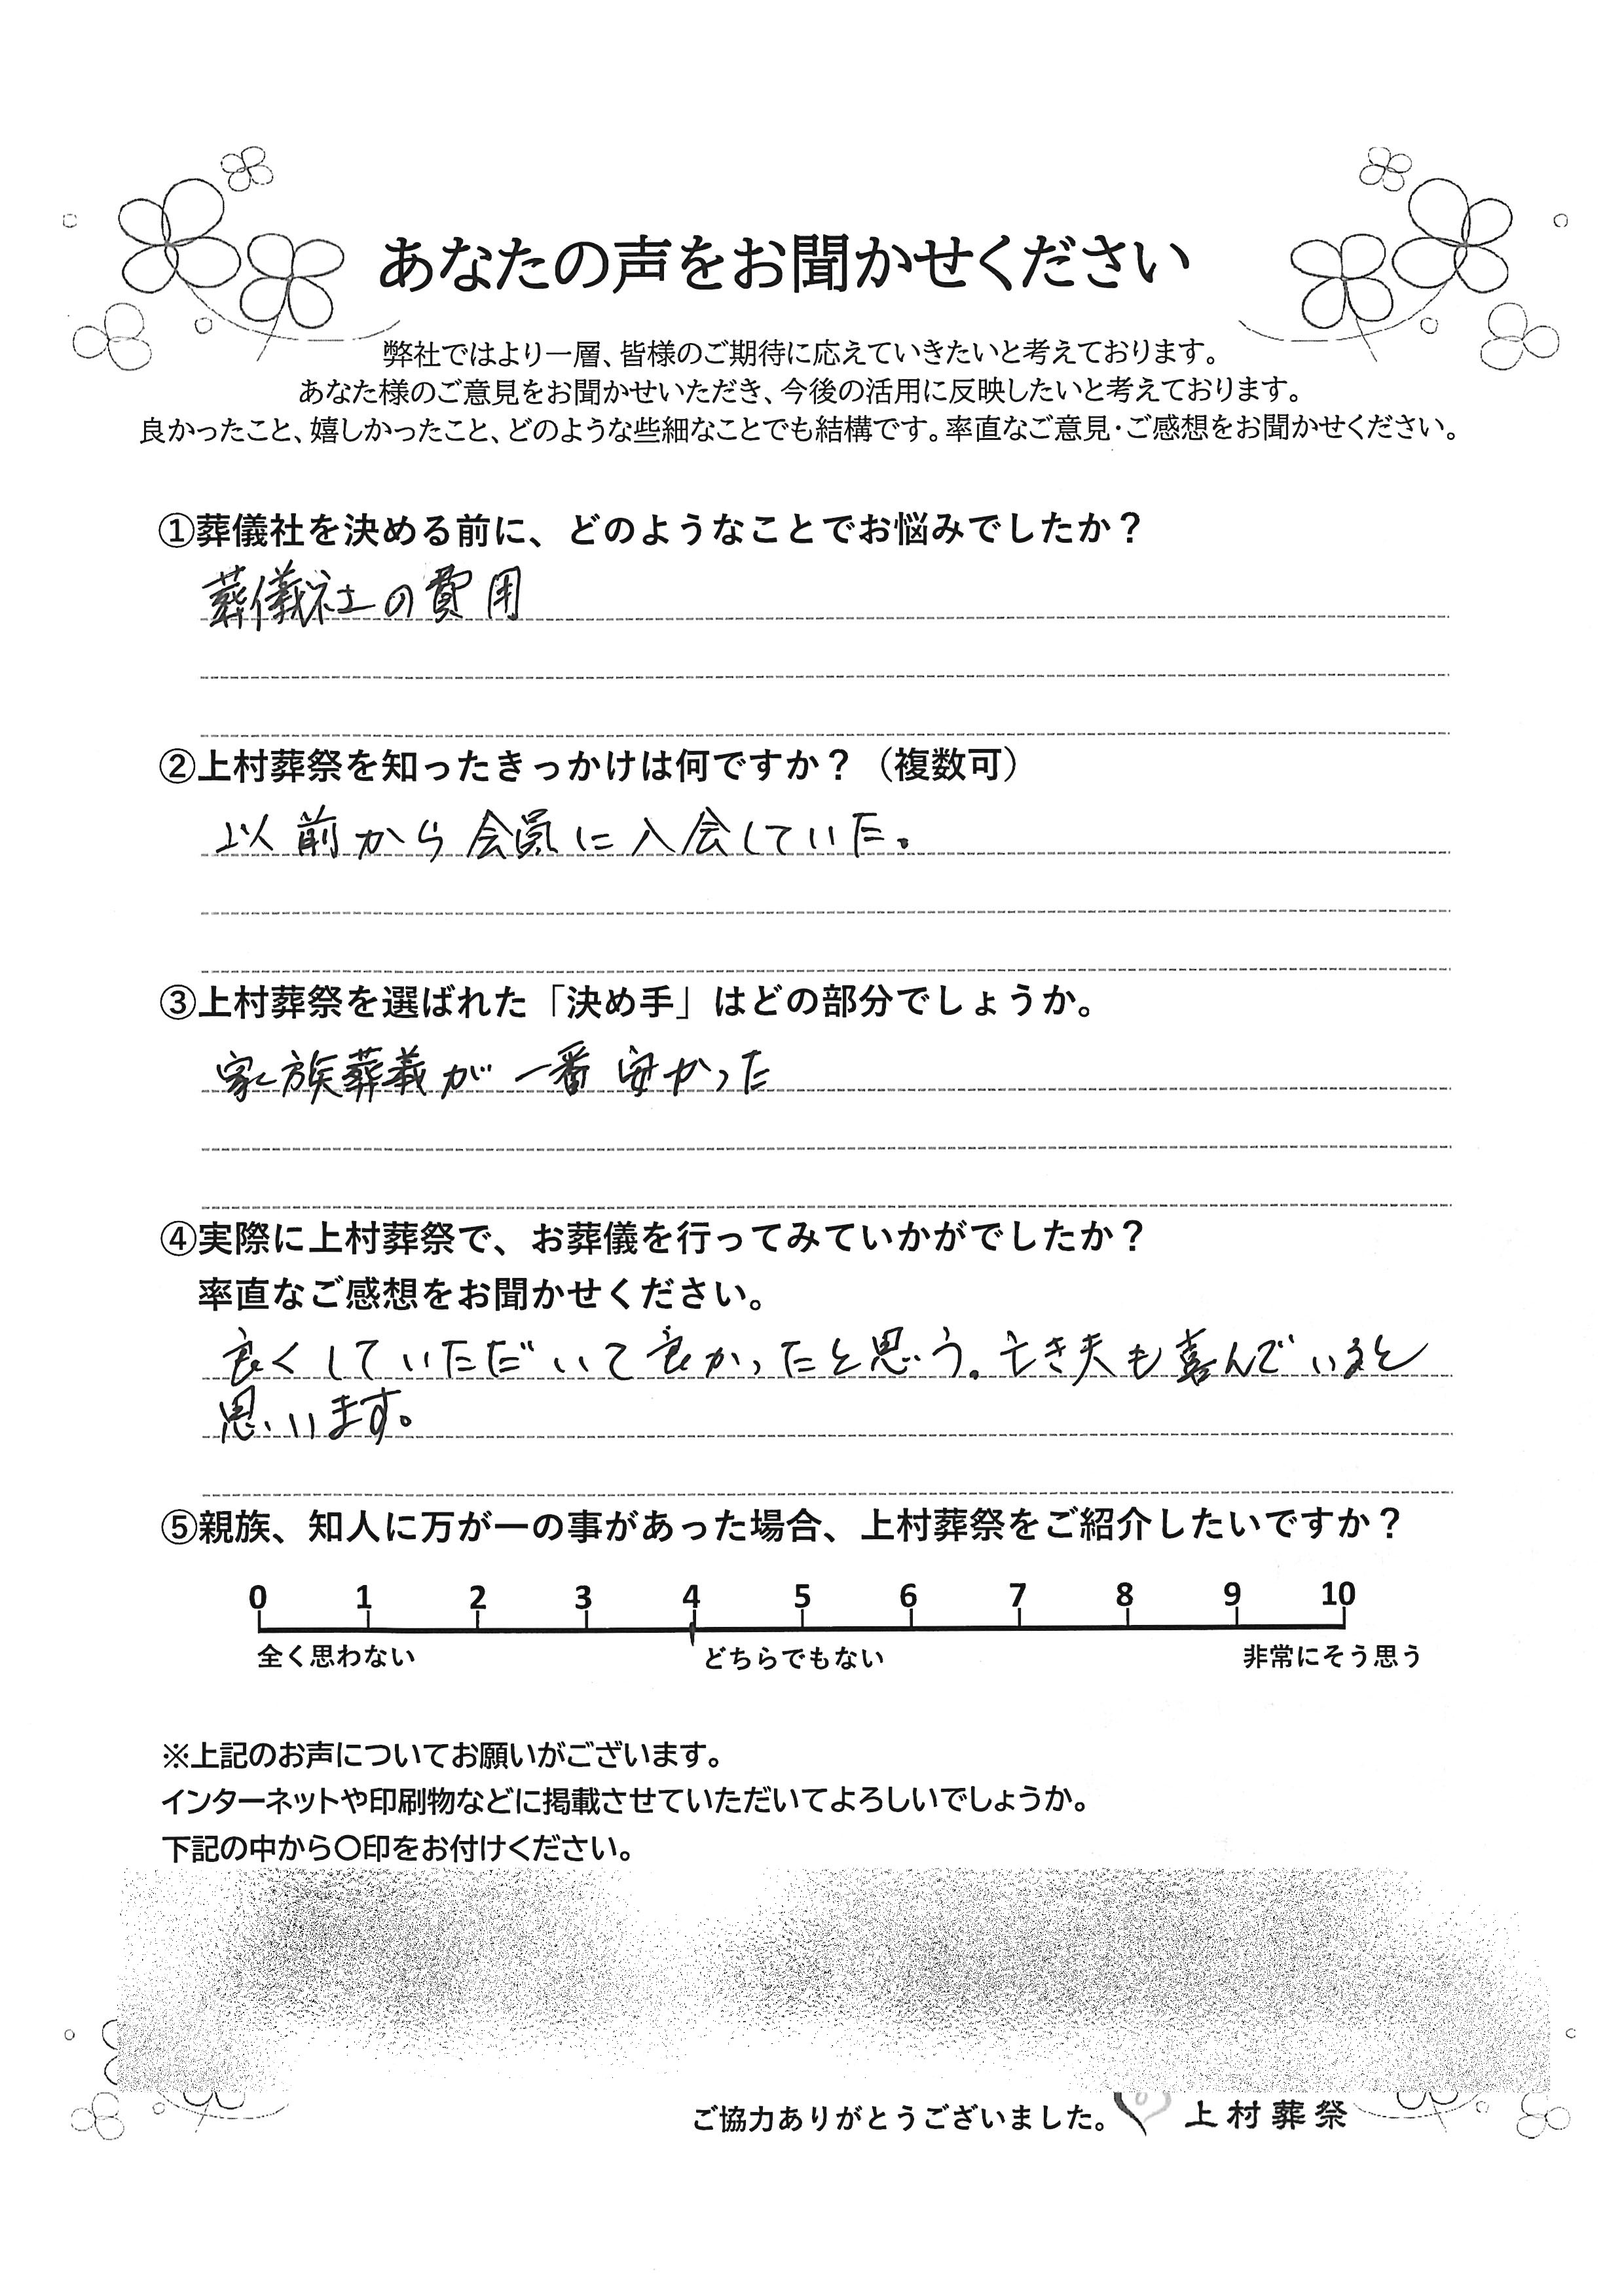 あなたの声をお聞かせください
弊社ではより一層、皆様のご期待に応えていきたいと考えております。
あなた様のご意見をお聞かせいただき、今後の活用に反映したいと考えております。
良かったこと、嬉しかったこと、どのような些細なことでも結構です。率直なご意見・ご感想をお聞かせください。
①葬儀社を決める前に、どのようなことでお悩みでしたか？
葬儀社の費用
②上村葬祭を知ったきっかけは何ですか？（複数可）
以前から会員に入会していた。
③上村葬祭を選ばれた「決め手」はどの部分でしょうか。
家族葬義が一番安かった
④実際に上村葬祭で、お葬儀を行ってみていかがでしたか？
率直なご感想をお聞かせください。
良くしていただいて良かったと思う。亡き夫も喜んでいると
思います。
⑤親族、知人に万が一の事があった場合、上村葬祭をご紹介したいですか？
0 1 2 3 4 5 6 7 8 9 10
全く思わない どちらでもない 非常にそう思う
※上記のお声についてお願いがございます。
インターネットや印刷物などに掲載させていただいてよろしいでしょうか。
下記の中から〇印をお付けください。
ご協力ありがとうございました。 上村葬祭